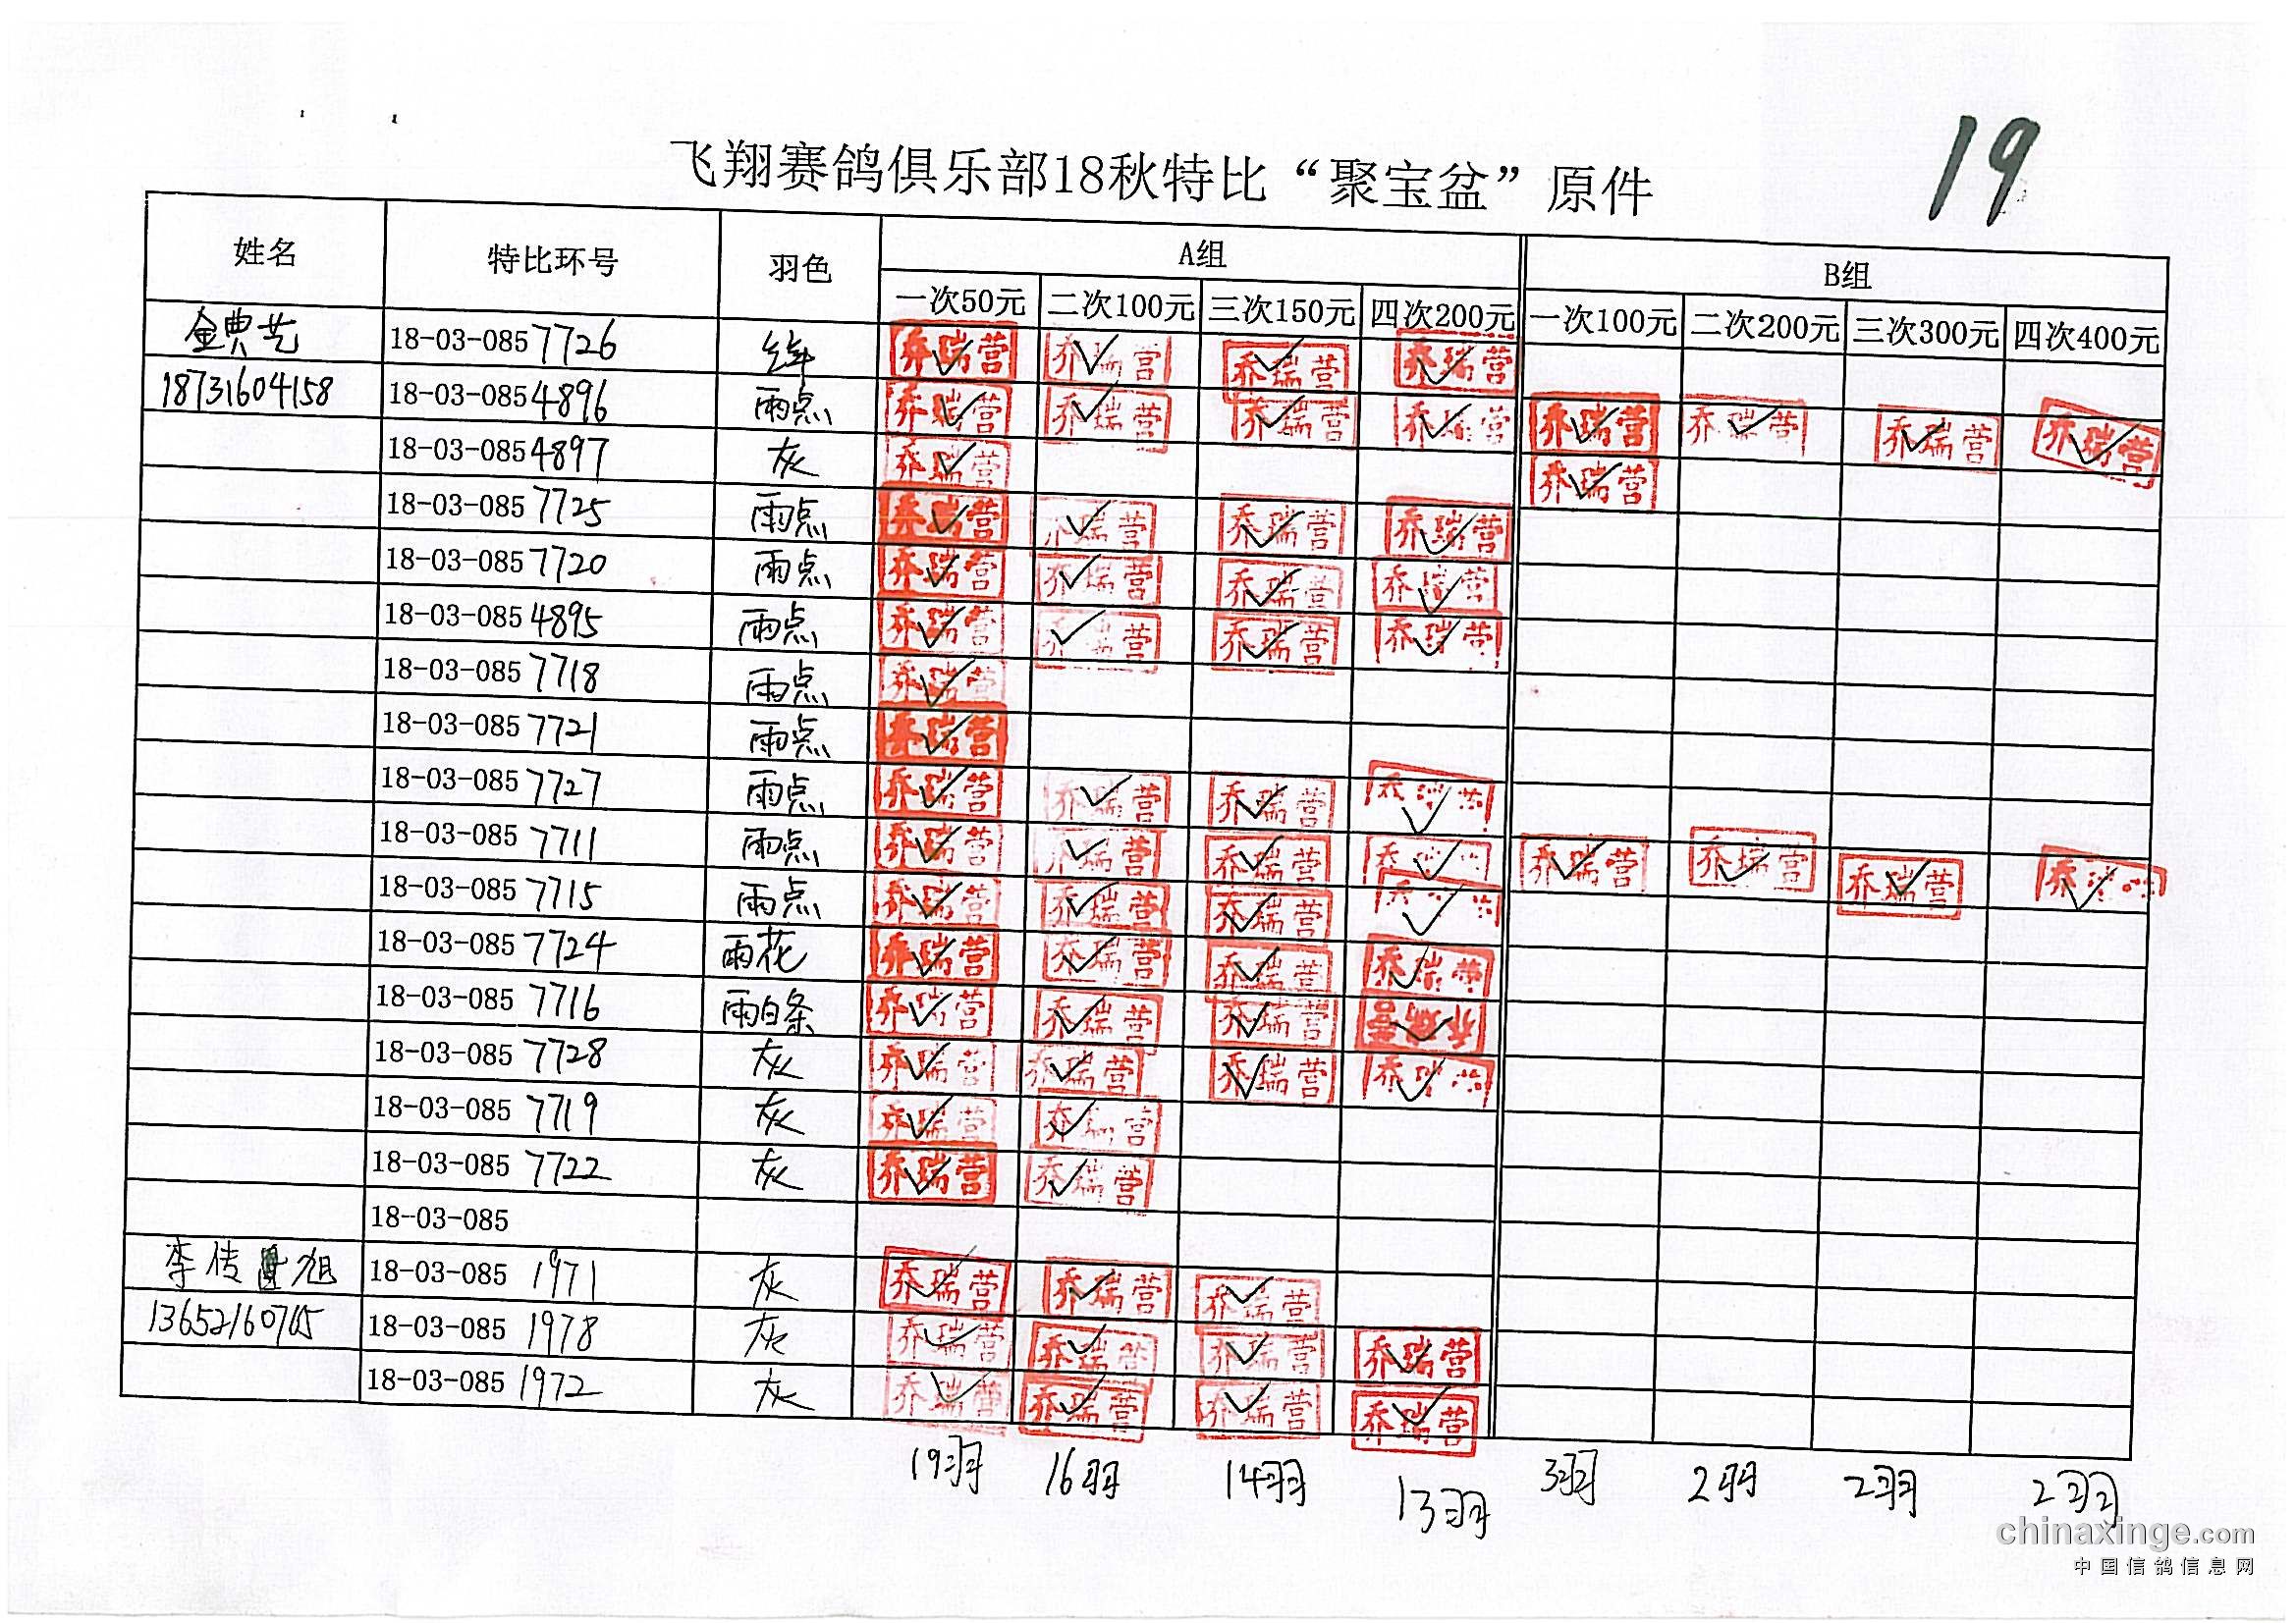 19
飞翔赛鸽俱乐部18秋特比“聚宝盆”原件
姓名 特比环号 羽色 A组 B组
一次50元 二次100元 三次150元 四次200元 一次100元 二次200元 三次300元 四次400元
金典艺 18-03-085 7726 绛 乔瑞营 乔瑞营 乔瑞营 乔瑞营
18731604158 18-03-085 4896 雨点 乔瑞营 乔瑞营 乔瑞营 乔瑞营 乔瑞营 乔瑞营 乔瑞营 乔瑞营
18-03-085 4897 灰 乔瑞营 乔瑞营
18-03-085 7725 雨点 乔瑞营 乔瑞营 乔瑞营 乔瑞营
18-03-085 7720 雨点 乔瑞营 乔瑞营 乔瑞营 乔瑞营
18-03-085 4895 雨点 乔瑞营 乔瑞营 乔瑞营 乔瑞营
18-03-085 7718 雨点 乔瑞营
18-03-085 7721 雨点 乔瑞营
18-03-085 7727 雨点 乔瑞营 乔瑞营 乔瑞营 乔瑞营
18-03-085 7711 雨点 乔瑞营 乔瑞营 乔瑞营 乔瑞营 乔瑞营 乔瑞营 乔瑞营 乔瑞营
18-03-085 7715 雨点 乔瑞营 乔瑞营 乔瑞营 乔瑞营
18-03-085 7724 雨花 乔瑞营 乔瑞营 乔瑞营 乔瑞营
18-03-085 7716 雨白条 乔瑞营 乔瑞营 乔瑞营 乔瑞营
18-03-085 7728 灰 乔瑞营 乔瑞营 乔瑞营 乔瑞营
18-03-085 7719 灰 乔瑞营 乔瑞营
18-03-085 7722 灰 乔瑞营 乔瑞营
18-03-085
李传旭 18-03-085 1971 灰 乔瑞营 乔瑞营 乔瑞营
13652160765 18-03-085 1978 灰 乔瑞营 乔瑞营 乔瑞营 乔瑞营
18-03-085 1972 灰 乔瑞营 乔瑞营 乔瑞营 乔瑞营
19羽 16羽 14羽 13羽 3羽 2羽 2羽 2羽
chinaxinge.com
中国信鸽信息网